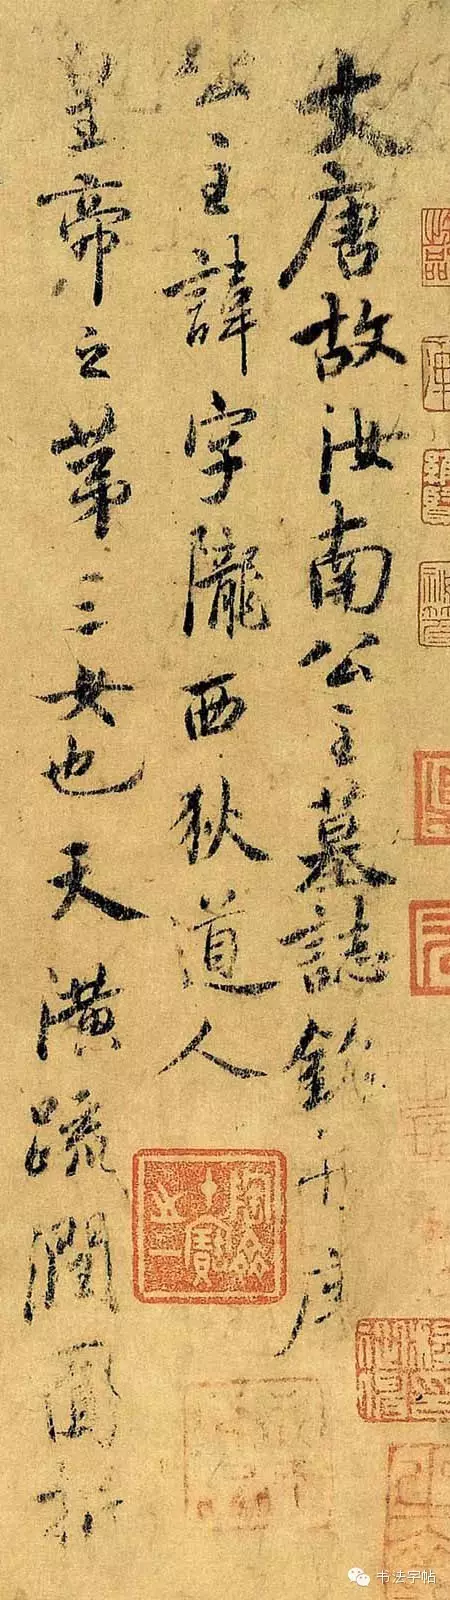 大唐故汝南公主墓誌銘并序
公主諱字隴西狄道人
皇帝之第三女也天潢疏潤圓折
书法字帖